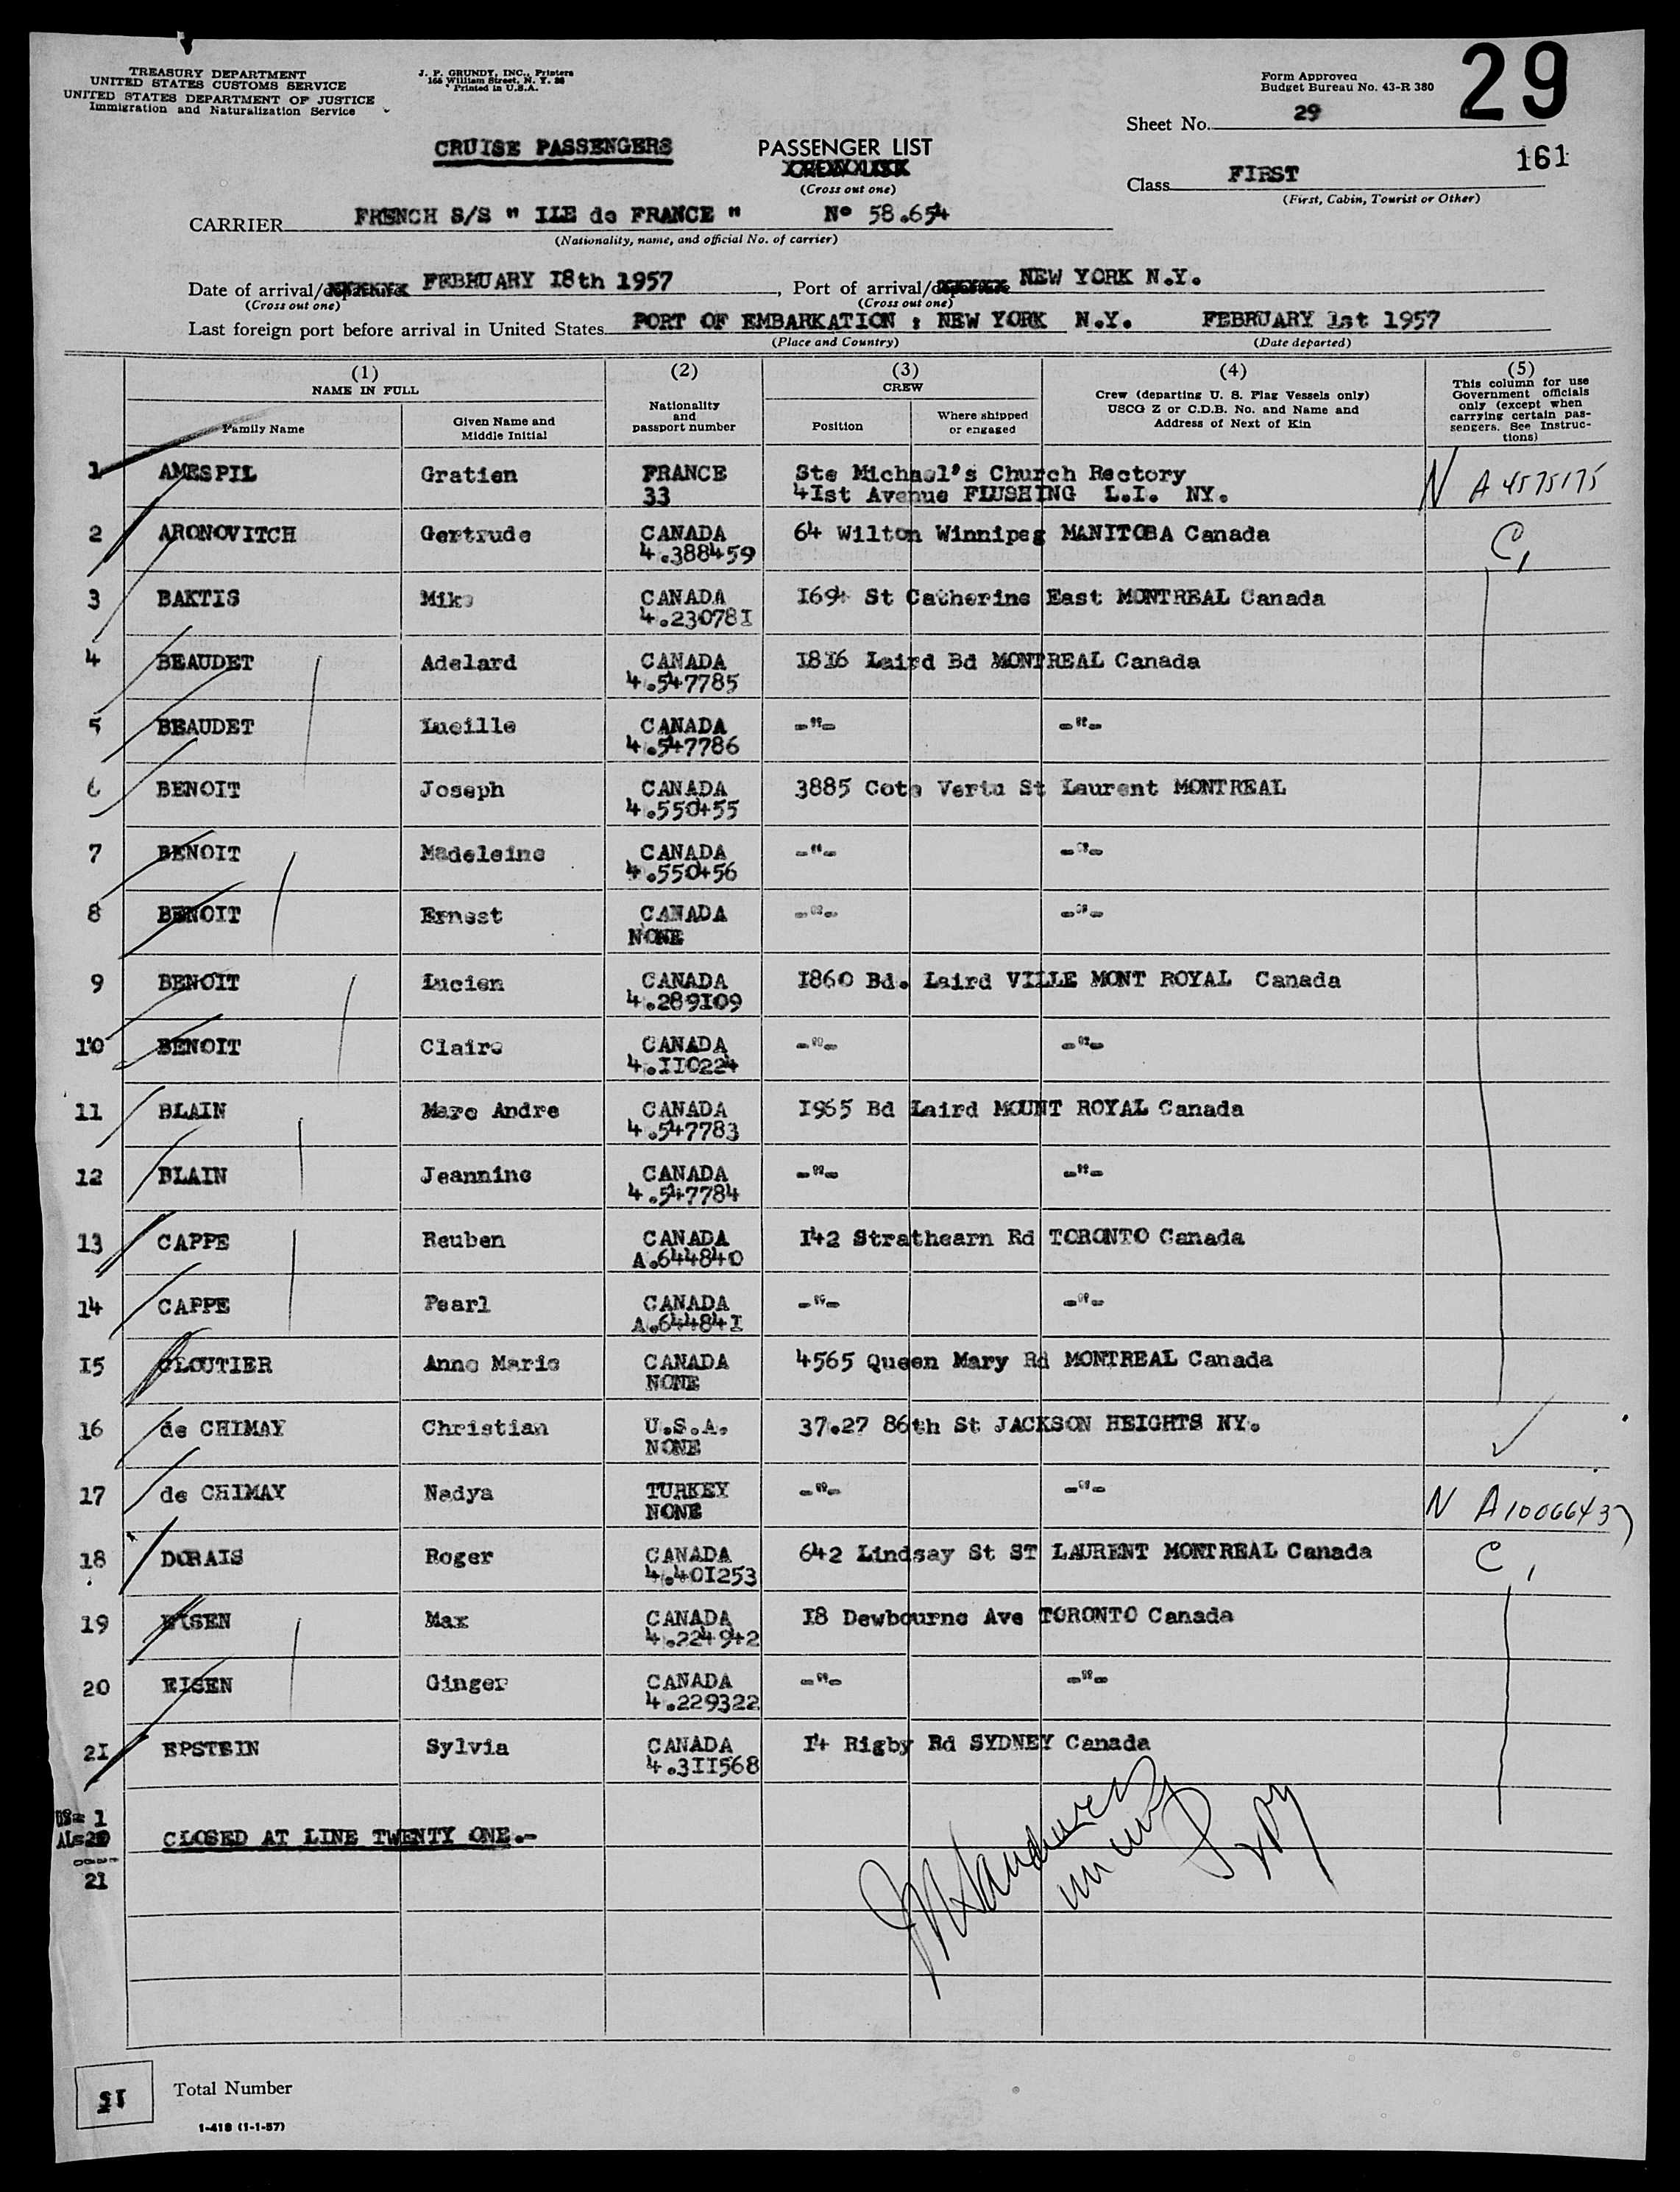 TREASURY DEPARTMENT
UNITED STATES CUSTOMS SERVICE
UNITED STATES DEPARTMENT OF JUSTICE
Immigration and Naturalization Service
J. P. GRUNDY, INC., Printers
166 William Street, N. Y. 38
Printed in U.S.A.
Form Approved
Budget Bureau No. 43-R 380
29
Sheet No. 29
161
CRUISE PASSENGERS
PASSENGER LIST
(Cross out one)
Class FIRST
(First, Cabin, Tourist or Other)
CARRIER FRENCH S/S " ILE de FRANCE " No 58.654
(Nationality, name, and official No. of carrier)
Date of arrival/departure FEBRUARY I8th 1957, Port of arrival/departure NEW YORK N.Y.
(Cross out one) (Cross out one)
Last foreign port before arrival in United States PORT OF EMBARKATION : NEW YORK N.Y. FEBRUARY 1st 1957
(Place and Country) (Date departed)
(1) NAME IN FULL
Family Name
Given Name and Middle Initial
(2) Nationality and passport number
(3) CREW
Position
Where shipped or engaged
(4) Crew (departing U. S. Flag Vessels only) USCG Z or C.D.B. No. and Name and Address of Next of Kin
(5) This column for use Government officials only (except when carrying certain passengers. See Instructions)
1 AMESPIL Gratien FRANCE Ste Michael's Church Rectory N A 4575175
33 4Ist Avenue FLUSHING L.I. NY.
2 ARONOVITCH Gertrude CANADA 64 Wilton Winnipeg MANITOBA Canada C,
4.388459
3 BAKTIS Mike CANADA I694 St Catherine East MONTREAL Canada
4.23078I
4 BEAUDET Adelard CANADA I8I6 Laird Bd MONTREAL Canada
4.547785
5 BEAUDET Lucille CANADA -"- -"-
4.547786
6 BENOIT Joseph CANADA 3885 Cote Vertu St Laurent MONTREAL
4.550455
7 BENOIT Madeleine CANADA -"- -"-
4.550456
8 BENOIT Ernest CANADA -"- -"-
NONE
9 BENOIT Lucien CANADA I860 Bd. Laird VILLE MONT ROYAL Canada
4.289I09
10 BENOIT Claire CANADA -"- -"-
4.II0224
11 BLAIN Marc Andre CANADA I965 Bd Laird MOUNT ROYAL Canada
4.547783
12 BLAIN Jeannine CANADA -"- -"-
4.547784
13 CAPPE Reuben CANADA I42 Strathearn Rd TORONTO Canada
A.644840
14 CAPPE Pearl CANADA -"- -"-
A.64484I
I5 CLOUTIER Anne Marie CANADA 4565 Queen Mary Rd MONTREAL Canada
NONE
16 de CHIMAY Christian U.S.A. 37.27 86th St JACKSON HEIGHTS NY. ✓
NONE
17 de CHIMAY Nadya TURKEY -"- -"- N A10066437
NONE
18 DORAIS Roger CANADA 642 Lindsay St ST LAURENT MONTREAL Canada C,
4.40I253
19 EISEN Max CANADA I8 Dewbourne Ave TORONTO Canada
4.224942
20 EISEN Ginger CANADA -"- -"-
4.229322
2I EPSTEIN Sylvia CANADA I4 Rigby Rd SYDNEY Canada
4.3II568
US= 1
AL=20
CLOSED AT LINE TWENTY ONE.-
21
Total Number
1-418 (1-1-57)